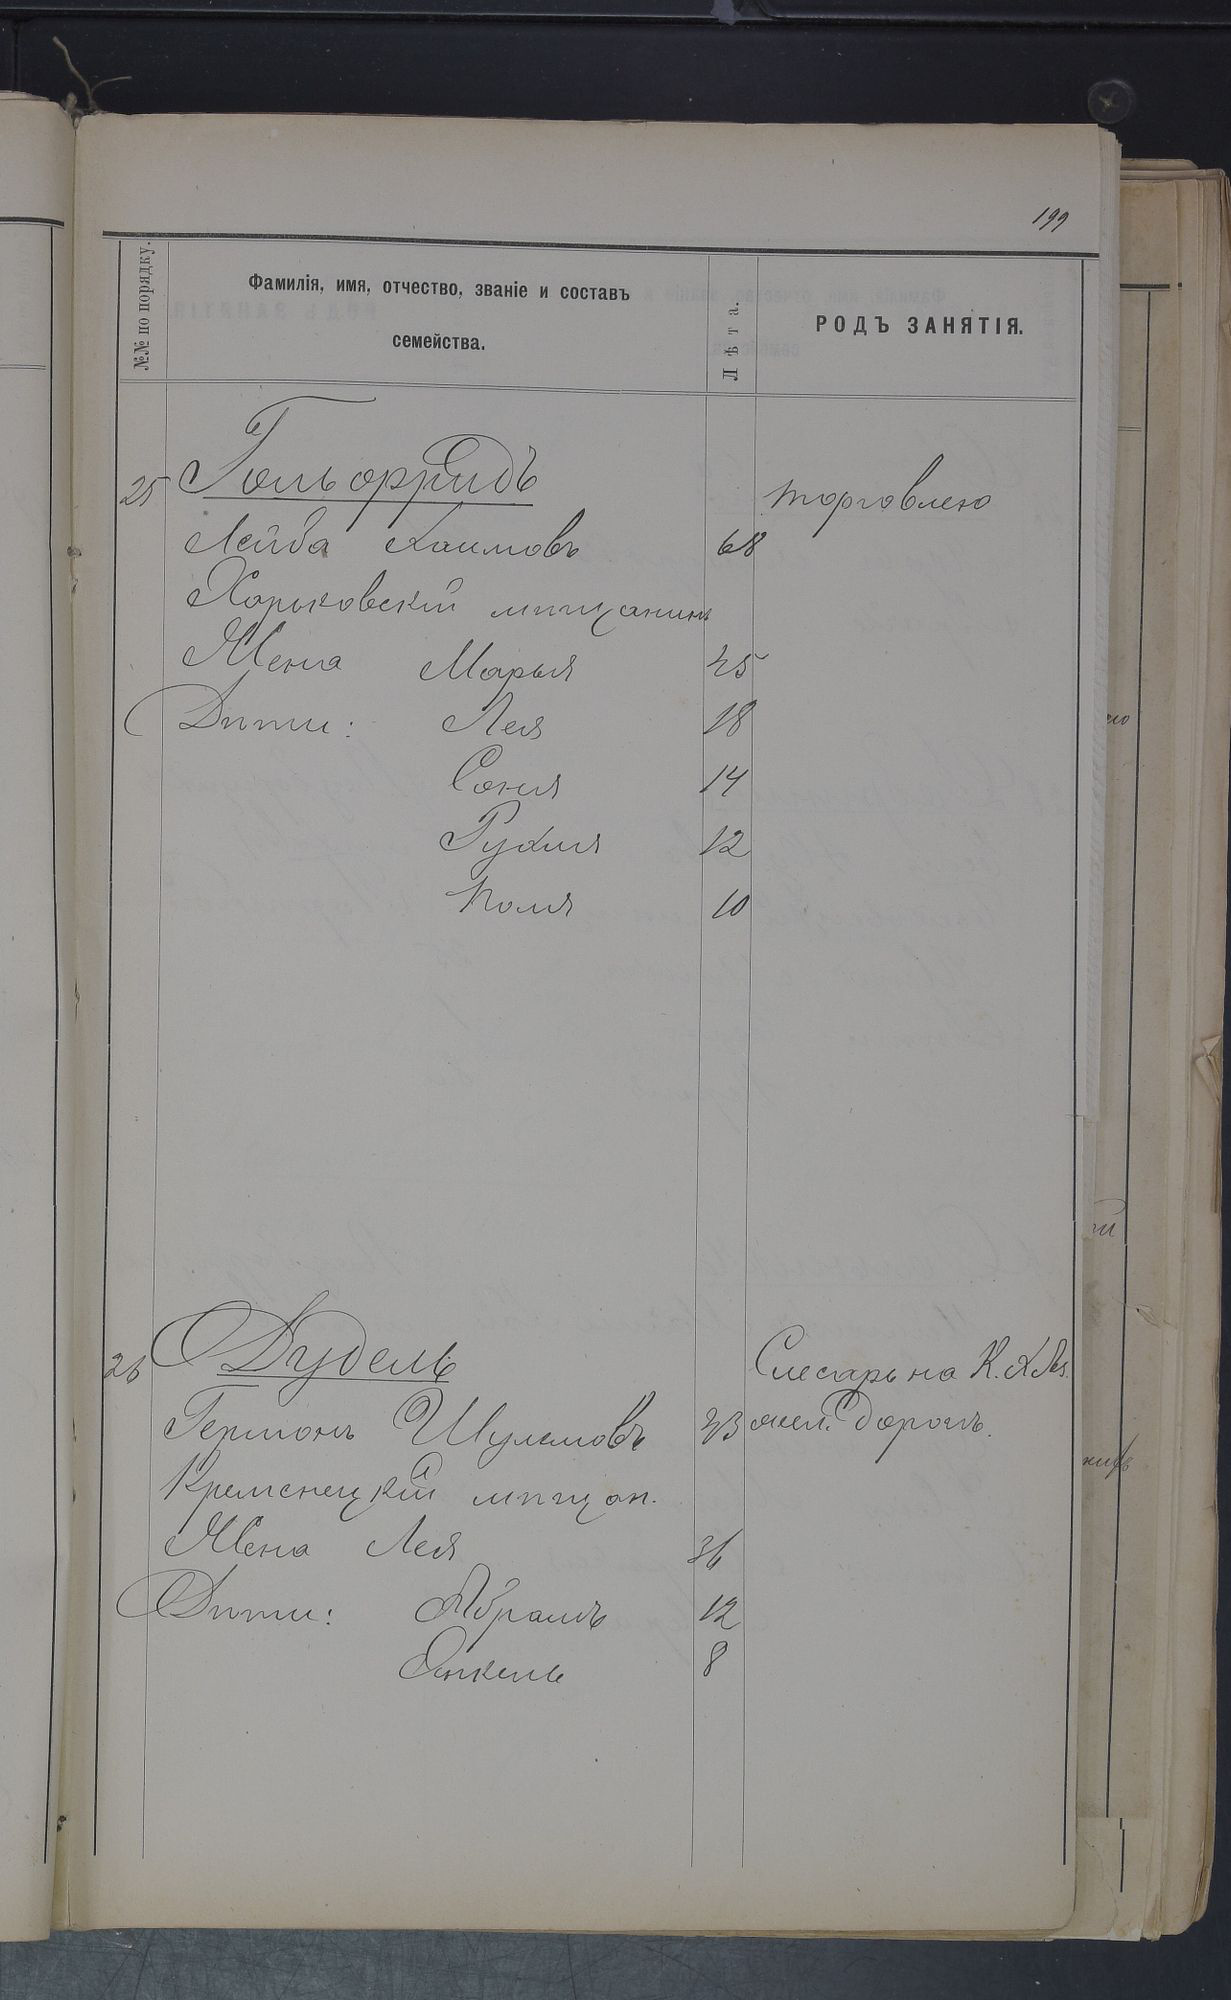 199
№№ по порядку.
Фамилія, имя, отчество, званіе и составъ
семейства.
Лѣта.
РОДЪ ЗАНЯТІЯ.
25 Гольдфридъ торговлею
Лейба Хаимовъ 68
Харьковскій мѣщанинъ
Жена Марья 45
Дѣти: Лея 18
Соня 14
Рухля 12
Поля 10
26 Дудель Слесарь на К. Х Аз.
Германъ Шулимовъ 43 жел. дорогѣ.
Кременецкій мѣщан.
Жена Лея 36
Дѣти: Абрамъ 12
Янкель 8